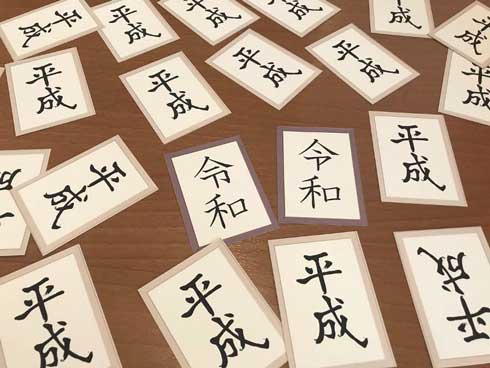 平成
平成
成
成
成
平成
平成
平成
平成
平成
平成
平成
令和
令和
平成
平成
平成
平成
平成